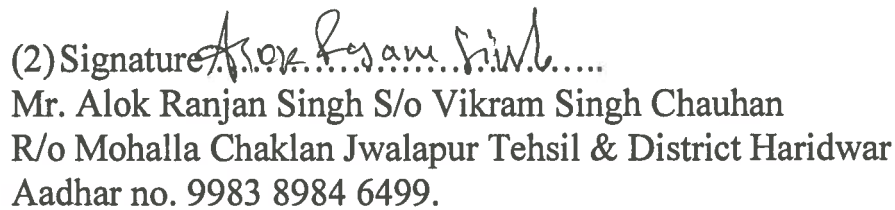 (2) Signature Alok Rajan Singh.....
Mr. Alok Ranjan Singh S/o Vikram Singh Chauhan
R/o Mohalla Chaklan Jwalapur Tehsil & District Haridwar
Aadhar no. 9983 8984 6499.